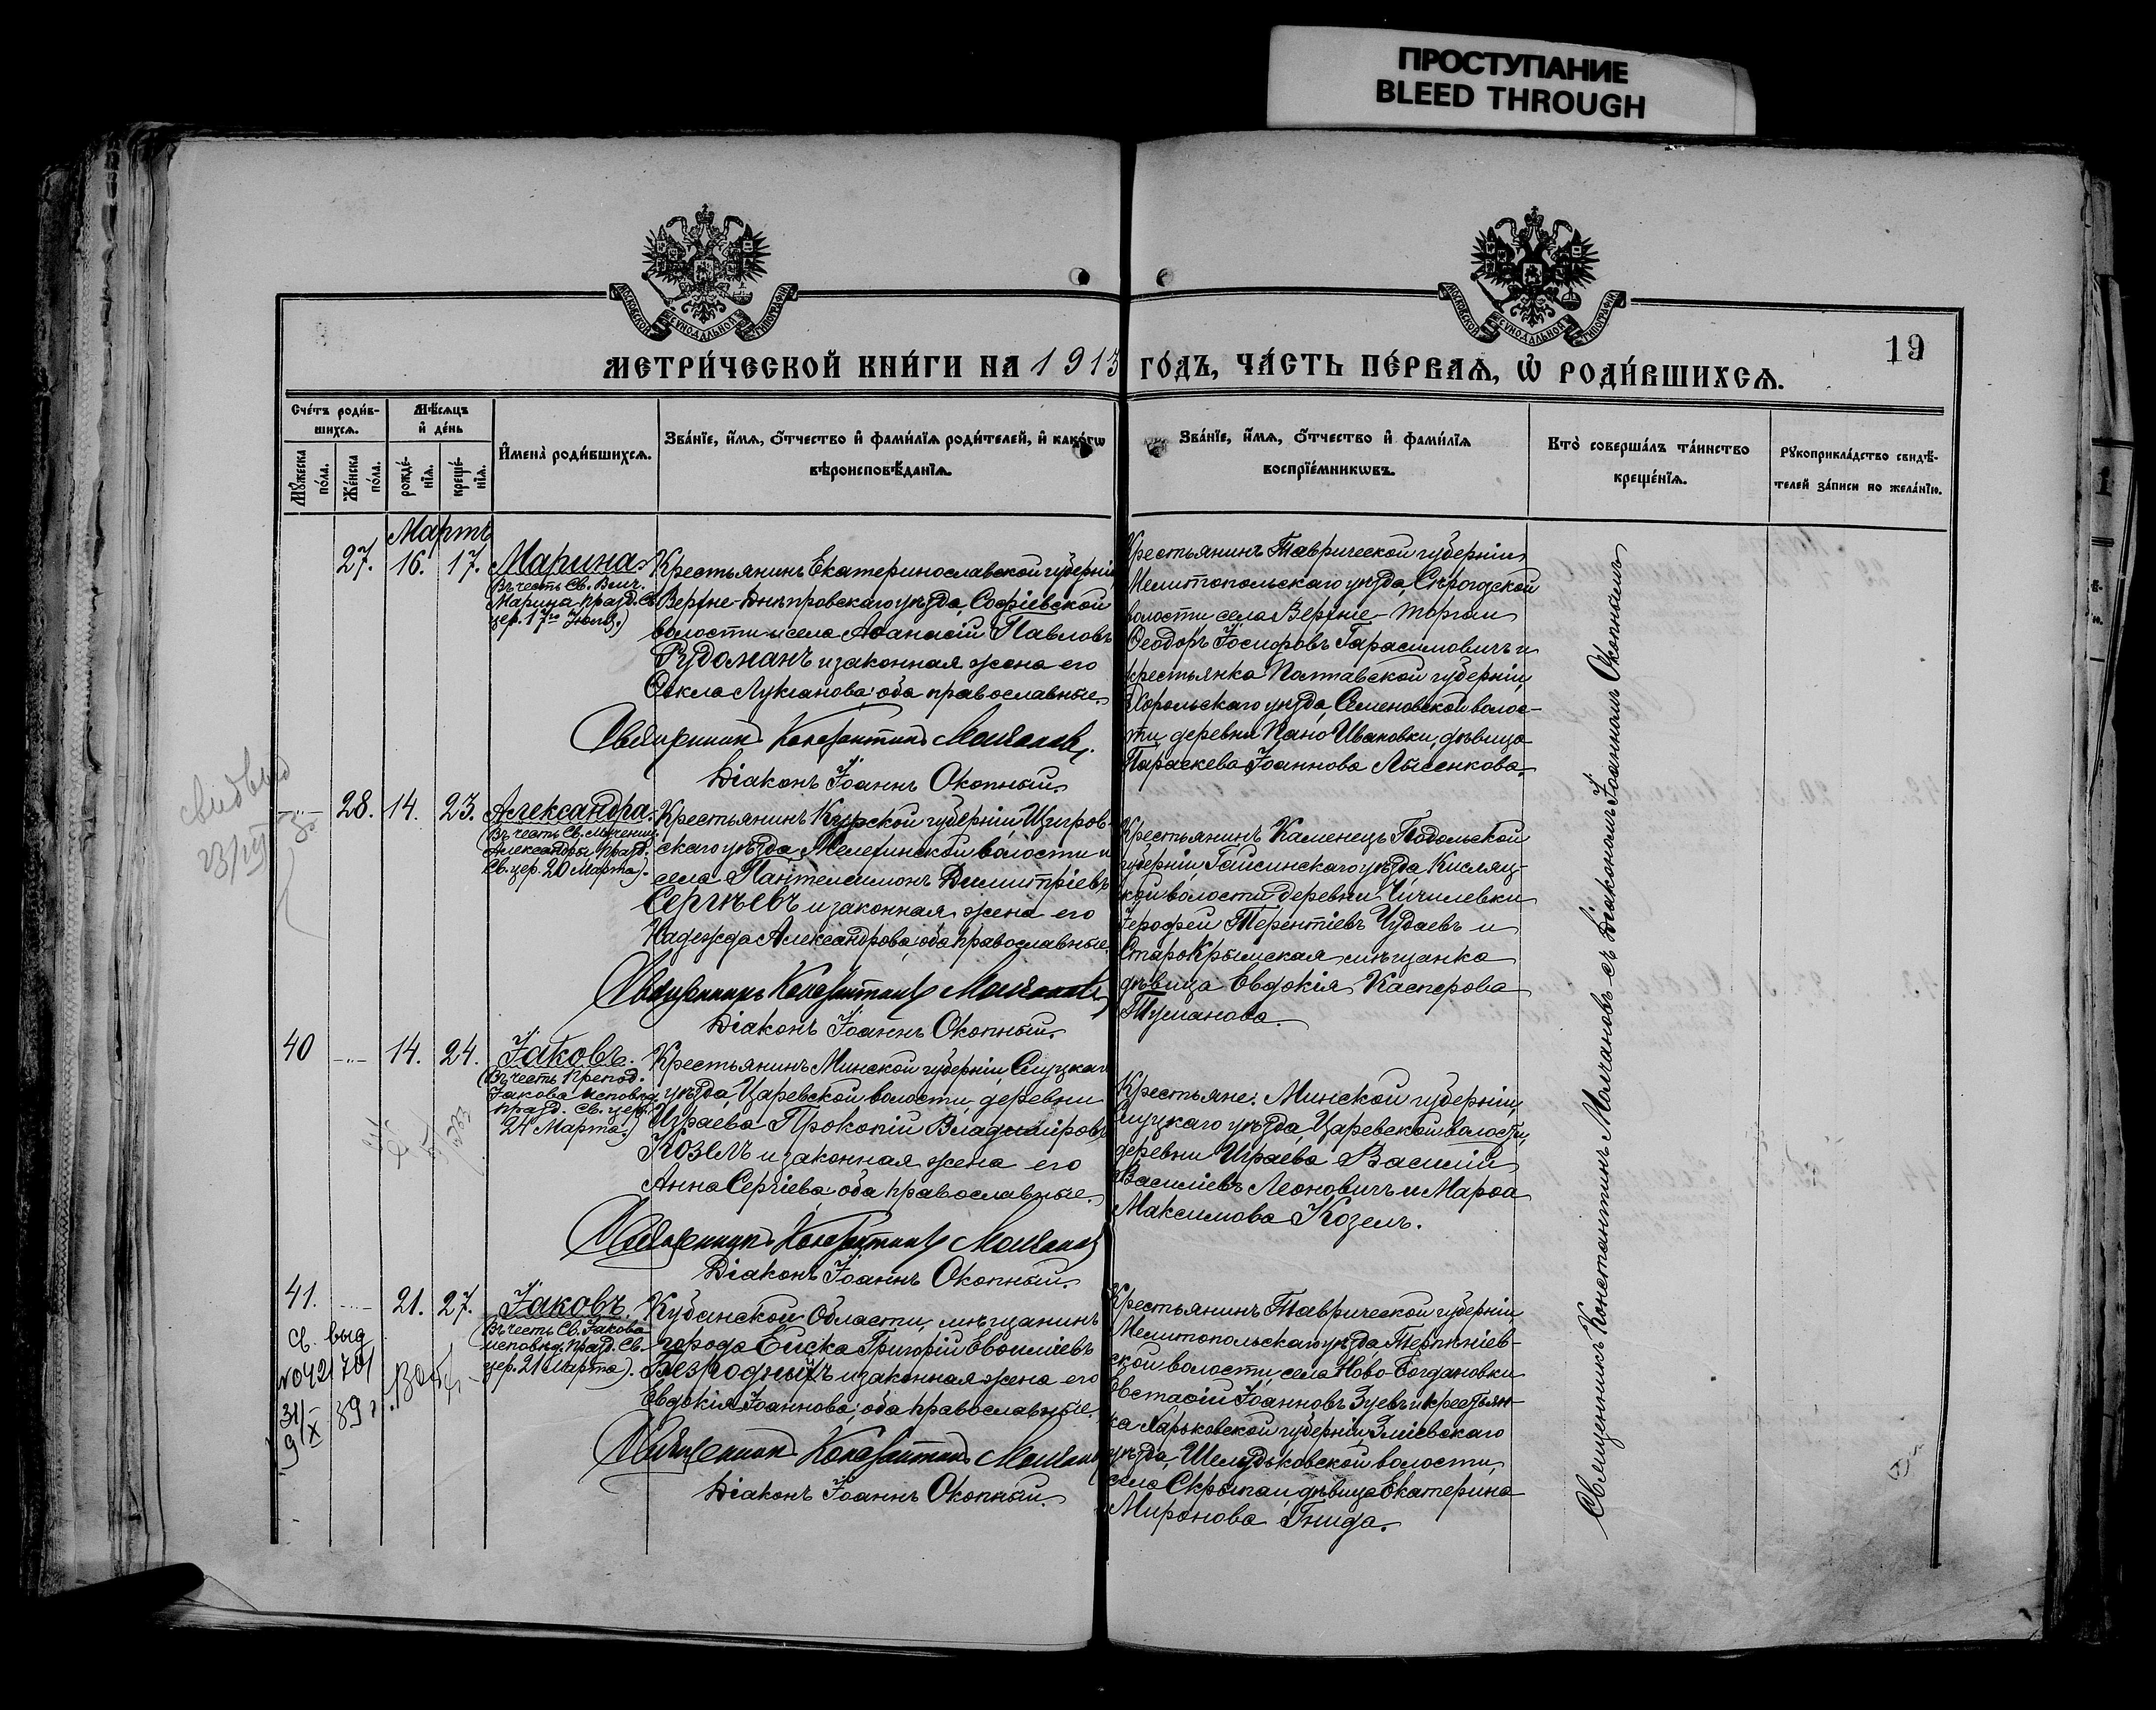 ПРОСТУПАНИЕ
BLEED THROUGH
МОСКОВСКОЙ СѴНОДАЛЬНОЙ ТИПОГРАФІИ
МОСКОВСКОЙ СѴНОДАЛЬНОЙ ТИПОГРАФІИ
19
МЕТРИ́ЧЕСКОЙ КНИ́ГИ НА 1913 ГО́ДЪ, ЧА́СТЬ ПЕ́РВАѦ, Ѡ҆ РОДИ́ВШИХСѦ.
Сче́тъ роди́в-
шихсѧ.
Мѣ́сѧцъ
и҆ де́нь
Мꙋ́жеска
по́ла.
Же́нска
по́ла.
рожде́-
нїѧ.
креще́-
нїѧ.
И҆мена̀ роди́вшихсѧ.
Зва́нїе, и҆́мѧ, ѻ҆́тчество и҆ фами́лїѧ роди́телей, и҆ како́гѡ
вѣроисповѣ́данїѧ.
Зва́нїе, и҆́мѧ, ѻ҆́тчество и҆ фами́лїѧ
воспрїе́мникѡвъ.
Кто̀ соверша́лъ та́инство
креще́нїѧ.
Рꙋкоприкла́дство свидѣ́-
телей за́писи по жела́нїю.
Мартъ
27. 16. 17. Марина
(Въ честь Св. Влмч.
Марина празд. Св.
цер. 17го Іюля.)
Крестьянинъ Екатеринославской губерніи
Верхне-Днѣпровскаго уѣзда, Софіевской
волости и села Аѳанасій Павловъ
Рудоманъ и законная жена его
Ѳекла Лукіанова; оба православные.
Священникъ Константинъ Молчановъ.
Діаконъ Іоаннъ Окопный.
Крестьянинъ Таврической губерніи
Мелитопольскаго уѣзда, Сѣрогозской
волости, села Верхніе-Торгаи
Ѳеодоръ Іосифовъ Гарасимовичъ и
крестьянка Полтавской губерніи,
Хорольскаго уѣзда, Семеновской волос-
ти, деревни Пано-Ивановки, дѣвица
Параскева Іоаннова Лысенкова.
Священникъ Константинъ Молчановъ съ Діакономъ Іоанномъ Окопнымъ
28. 14. 23. Александра.
(Въ честь Св. Мученицы
Александры празд.
Св. цер. 20 Марта).
Крестьянинъ Курской губерніи, Щигров-
скаго уѣзда, Мелехинской волости и
села Пантелеимонъ Димитріевъ
Сергѣевъ и законная жена его
Надежда Александрова; оба православные.
Священникъ Константинъ Молчановъ
Діаконъ Іоаннъ Окопный.
Крестьянинъ Каменецъ Подольской
губерніи, Гайсинскаго уѣзда, Кисляц-
кой волости, деревни Чичилевки
Іерофей Терентіевъ Чудаевъ и
Старокрымская мѣщанка
дѣвица Евдокія Касперова
Туманова.
40 14. 24. Іаковъ.
(Въ честь Препод.
Іакова исповѣд.
празд. Св. цер.
24 Марта.)
Крестьянинъ Минской губерніи, Слуцкаго
уѣзда, Царевской волости, деревни
Израева Прокопій Владиміровъ
Козелъ и законная жена его
Анна Сергіева; оба православные.
Священникъ Константинъ Молчановъ
Діаконъ Іоаннъ Окопный.
Крестьяне: Минской губерніи,
Слуцкаго уѣзда, Царевской волости,
деревни Израева Василій
Василіевъ Леоновичъ и Марѳа
Максимова Козелъ.
41. 21. 27. Іаковъ.
(Въ честь Св. Іакова
исповѣд. празд. Св.
цер. 21 Марта).
Кубанской Области, мѣщанинъ
города Ейска Григорій Евѳиміевъ
Безродный и законная жена его
Евдокія Іоаннова; оба православные.
Священникъ Константинъ Молчановъ
Діаконъ Іоаннъ Окопный.
Крестьянинъ Таврической губерніи,
Мелитопольскаго уѣзда, Терпѣніев-
ской волости, села Ново-Богдановки
Евстафій Іоанновъ Зуевъ и крестьян-
ка Харьковской губерніи, Зміевскаго
уѣзда, Шелудьковской волости,
села Скрыпаи, дѣвица Екатерина
Миронова Гнида.
св. выд
31/IX 39 г.